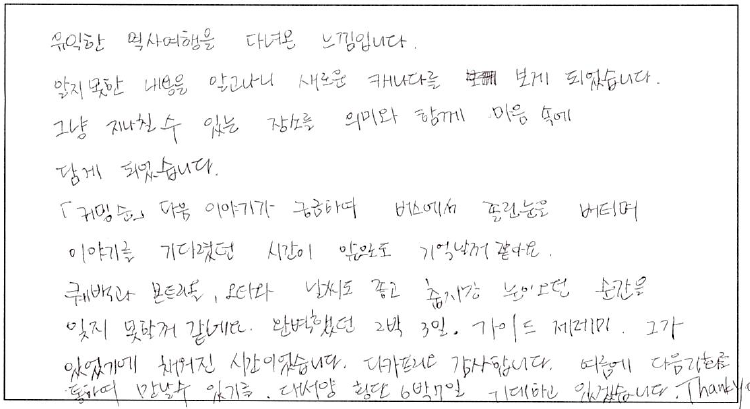 유익한 역사여행을 다녀온 느낌입니다.
알지못한 내용을 알고나니 새로운 캐나다를 보게 되었습니다.
그냥 지나칠 수 있는 장소를 의미와 함께 마음 속에
담게 되었습니다.
「커밍순」 다음 이야기가 궁금하여 버스에서 졸린눈을 버티며
이야기를 기다렸던 시간이 앞으로도 기억날거 같아요.
퀘백과 몬트리올, 오타와 날씨도 좋고 춥지만 눈이오던 순간을
잊지 못할거 같네요. 완벽했던 2박 3일. 가이드 제레미. 그가
있었기에 채워진 시간이었습니다. 디카프리오 감사합니다. 여름에 다음
통하여 만날수 있기를. 대서양 횡단 6박7일 기대하고 있겠습니다. Thank